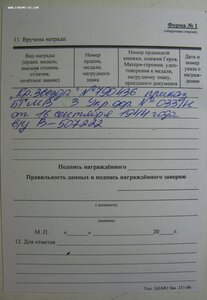 Форма № 1
(оборотная сторона)
11. Вручена награда:
Вид награды
(орден, медаль,
высшая степень
отличия,
почётное звание)
Номер
ордена,
медали,
нагрудного
знака
Номер орденской
книжки, книжки Героя,
Матери-героини,
удостоверения к медали,
нагрудному знаку,
проездного документа
Дата и
указа о
награж-
дении
Кр. Звезда № 790436 приказ
БТ и МВ 3 Укр. фр. № 033/н
от 16 сентября 1944 года
В-507222
Подпись награждённого
Правильность данных и подпись награждённого заверяю
М. П. « » 20 г.
12. Для отметок
Тип. ЦАМО Зак. 211-09